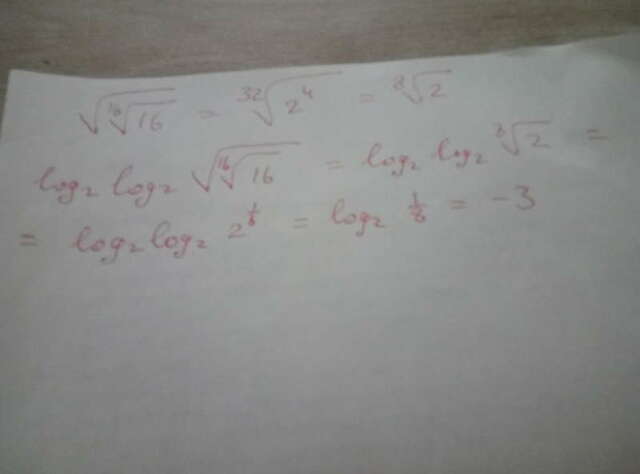 √(¹⁶√16) = ³²√(2⁴) = ⁸√2
log₂ log₂ √(¹⁶√16) = log₂ log₂ ⁸√2 =
= log₂ log₂ 2^(1/8) = log₂ 1/8 = -3